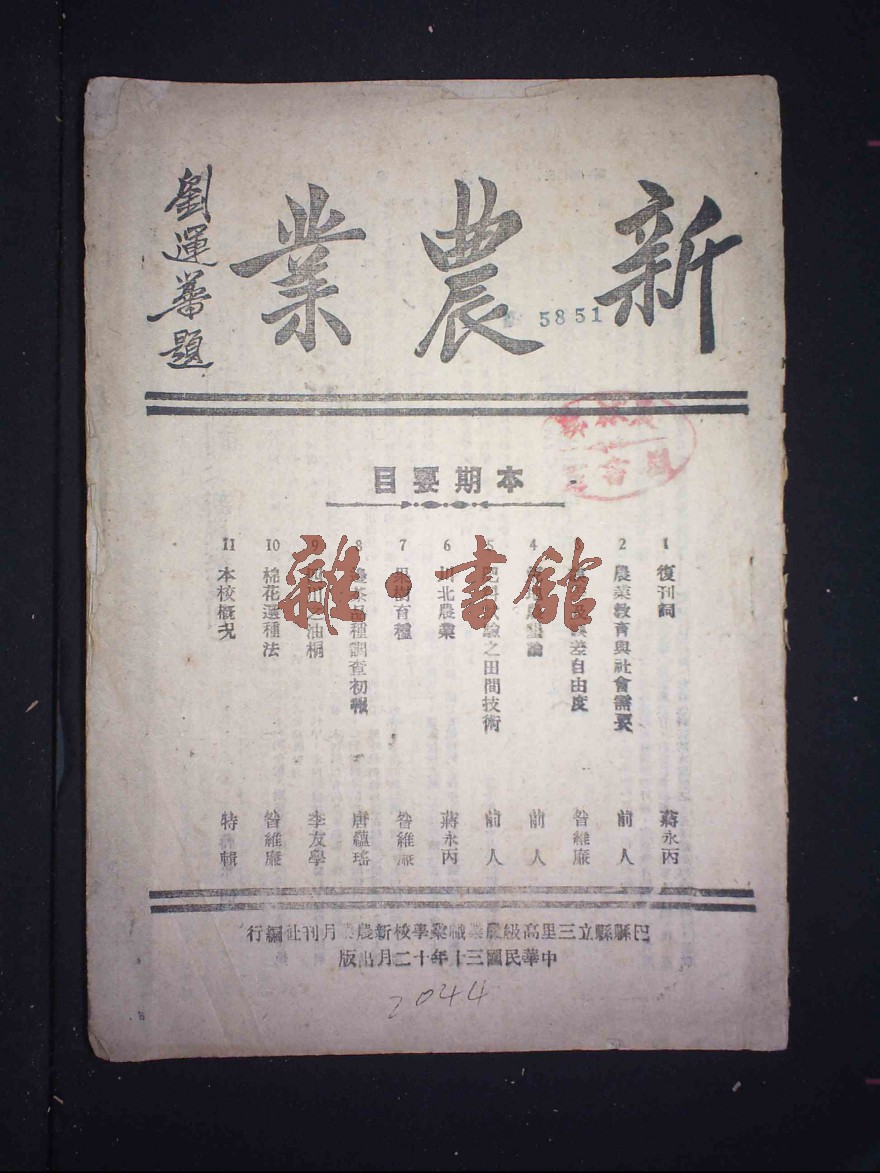 新農業
劉運籌題
5851
本期要目
1 復刊詞 蔣永丙
2 農業教育與社會需要 前人
3 差自由度 昝維廉
4 論 前人
5 肥料試驗之田間技術 前人
6 川北農業 蔣永丙
7 果樹育種 昝維廉
8 品種調查初報 唐蘊瑤
9 四川之油桐 李友學
10 棉花選種法 昝維廉
11 本校概况 特輯
雜·書館
巴縣縣立三里高級農業職業學校新農業月刊社編行
中華民國三十年十二月出版
2044